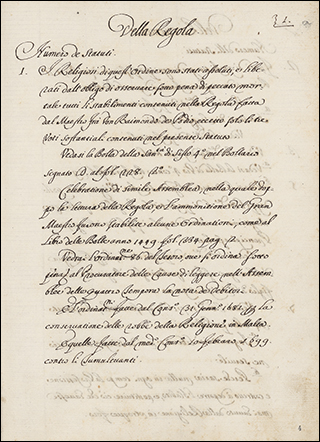 Della Regola
Numero de Statuti.
1. I Religiosi di quest'ordine sono stati assoluti, e libe-
rati dall'obligo di osservare sotto pena di peccato mor-
tale tutti li stabilimenti contenuti nella Regola fatta
dal Maestro fra Raimondo de Podio eccetto solo li tre
Voti sostantiali contenuti nel presente Statuto
Vedasi la Bolla della di Sisto 4º nel Bollario
Segnato D. al fol.
Celebratione di simile Assemblea, nella quale dopo
la lettura della Regola, et l'ammonitione del Gran
Maestro furono stabilite alcune ordinationi, come al
libro delle Bolle anno 1449 fol.
Vedra l'ordinatne 86 del Tesoro ove si ordina sotto
pena al Procuratore delle Cause di leggere nell'Assem-
blee delle quattro tempora la nota de Debitori
31 Genn.º 1682
conseguatione delle robbe della Religione in Malta
E quelle fatte dal med.º Cons.º 10 Febbraro 1699
contro li